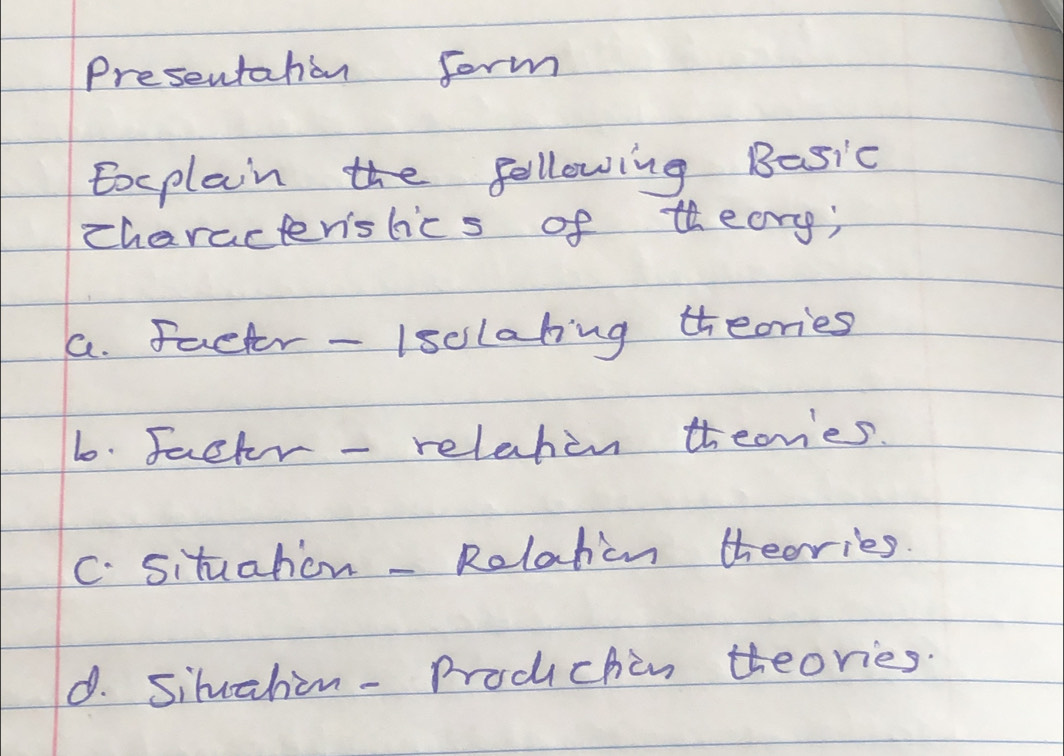 Presentation form
Explain the following Basic
characteristics of theory;
a. Factor - Isolating theories
b. Factor - relation theories.
c. Situation - Relation theories.
d. Situation - Production theories.